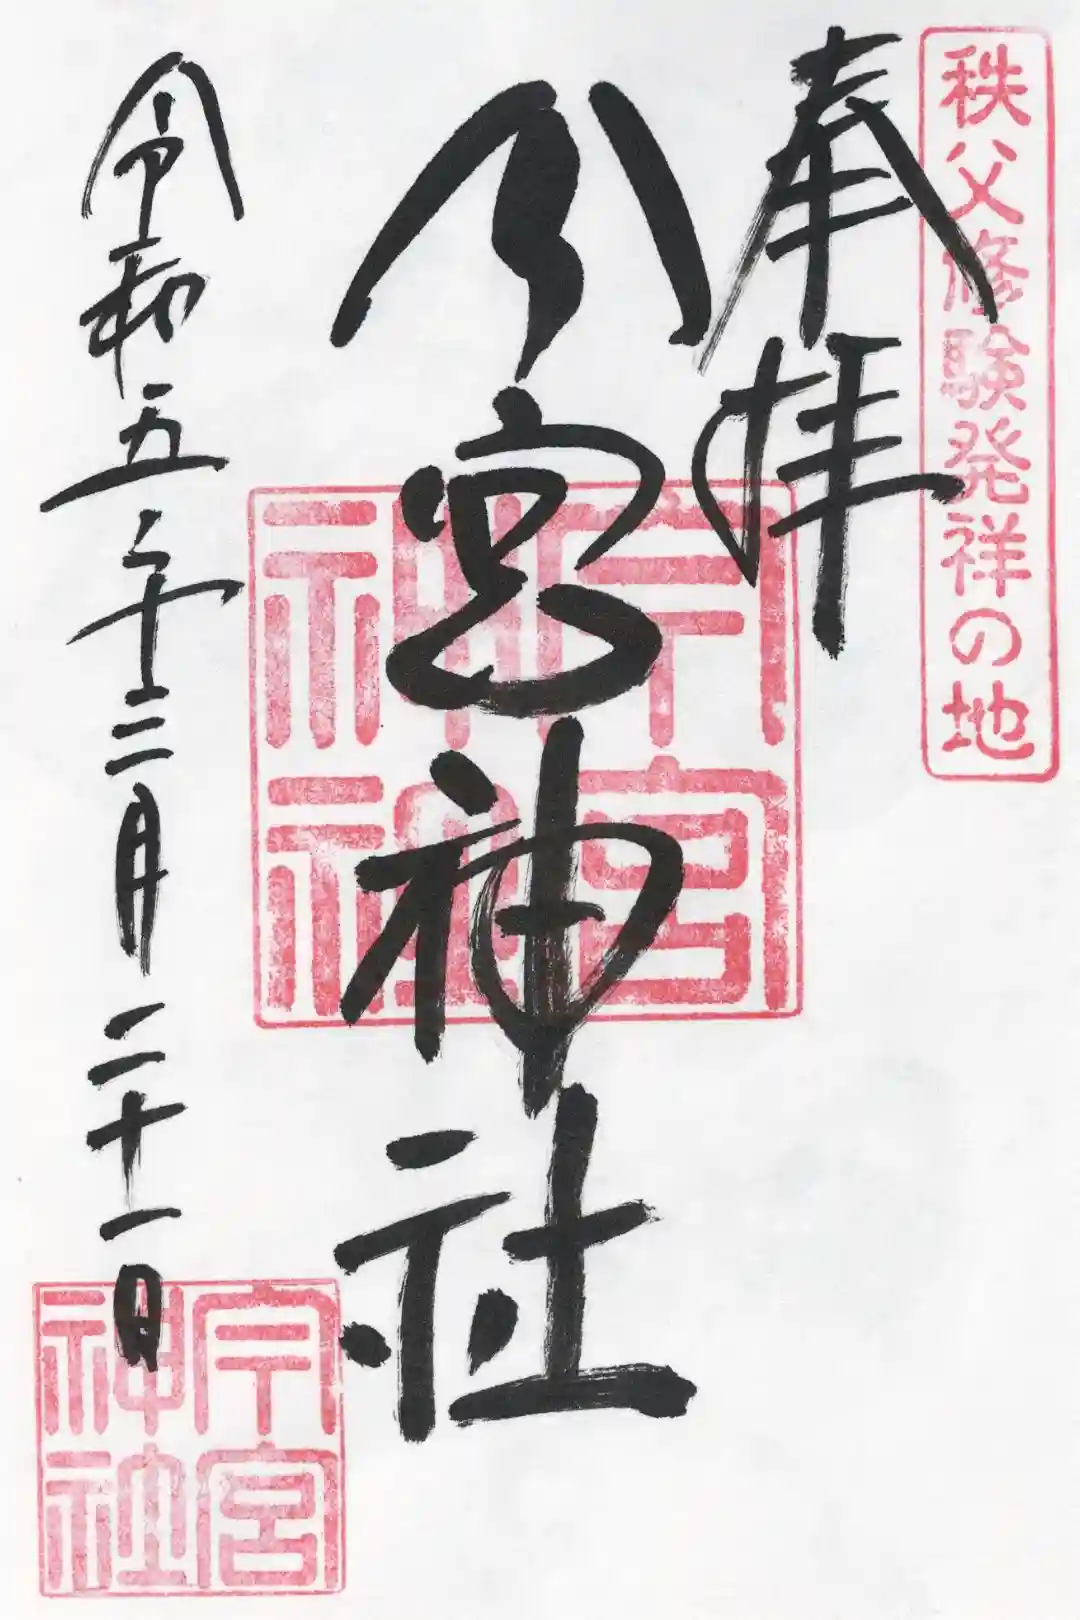 秩父修験発祥の地
奉拝
今宮神社
今宮神社
令和五年十二月二十一日
今宮神社